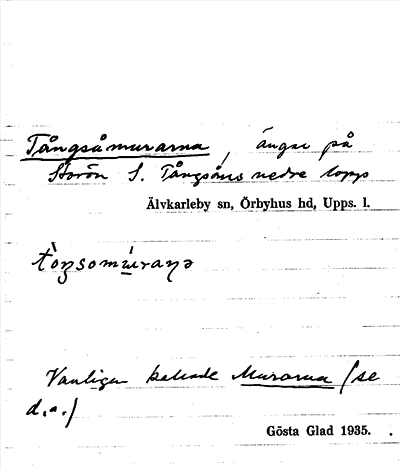 Tångsåmurarna, ängar på
Storön S. Tångsåns nedre lopp
Älvkarleby sn, Örbyhus hd, Upps. l.
Vanligen kallade Murarna (se
d.o.)
Gösta Glad 1935.